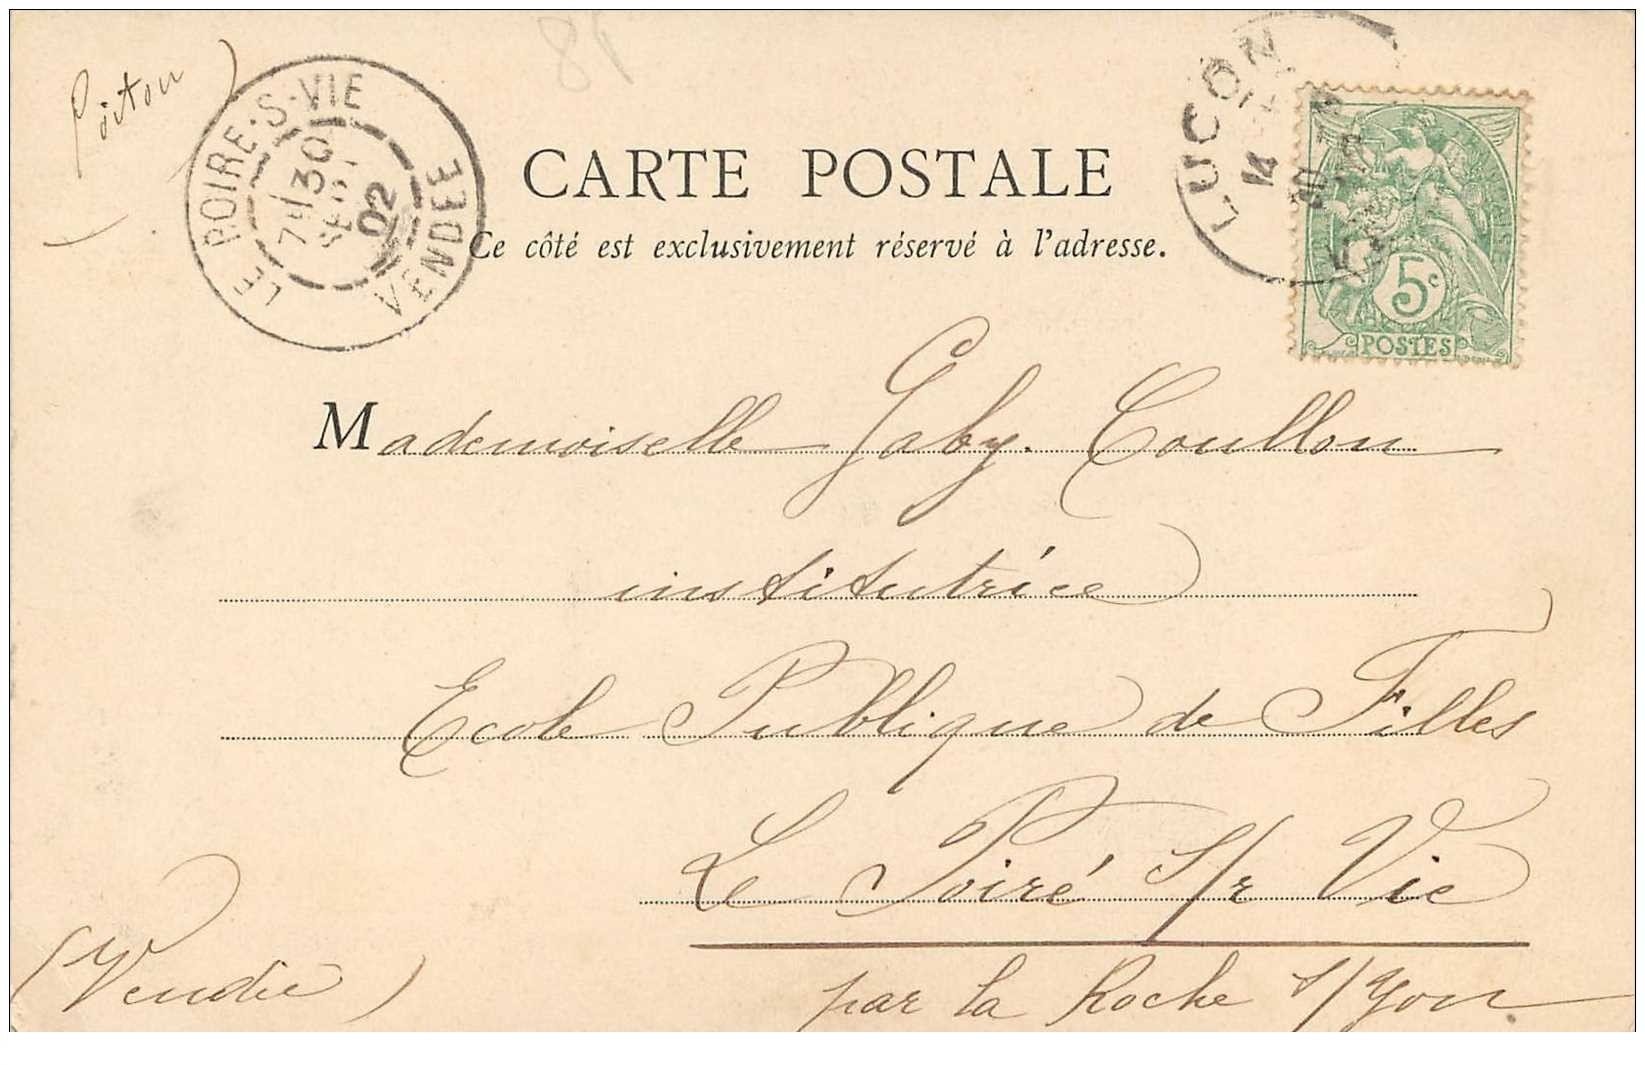 Poitou
85
LE POIRE-S-VIE
7H 30
SEPT
02
VENDEE
LUCON
CARTE POSTALE
Ce côté est exclusivement réservé à l'adresse.
5c
POSTES
Mademoiselle Gaby Coullon
institutrice
Ecole Publique de Filles
Le Poiré s/r Vie
(Vendée)
par la Roche s/Yon